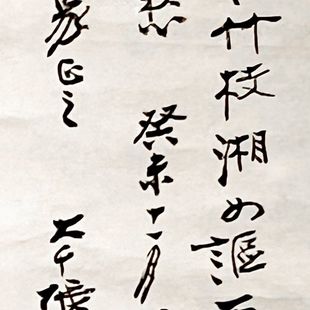 竹枝湘女謳
愁 癸未十一月
正之 大千張